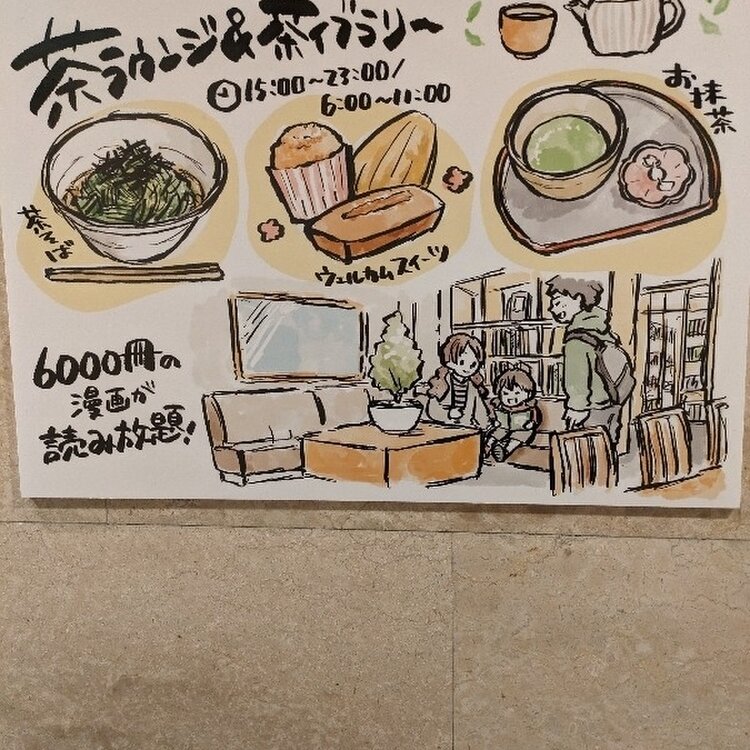 茶ラウンジ&茶イブラリー
15:00~23:00/
6:00~11:00
茶そば
ウェルカムスイーツ
お抹茶
6000冊の
漫画が
読み放題!